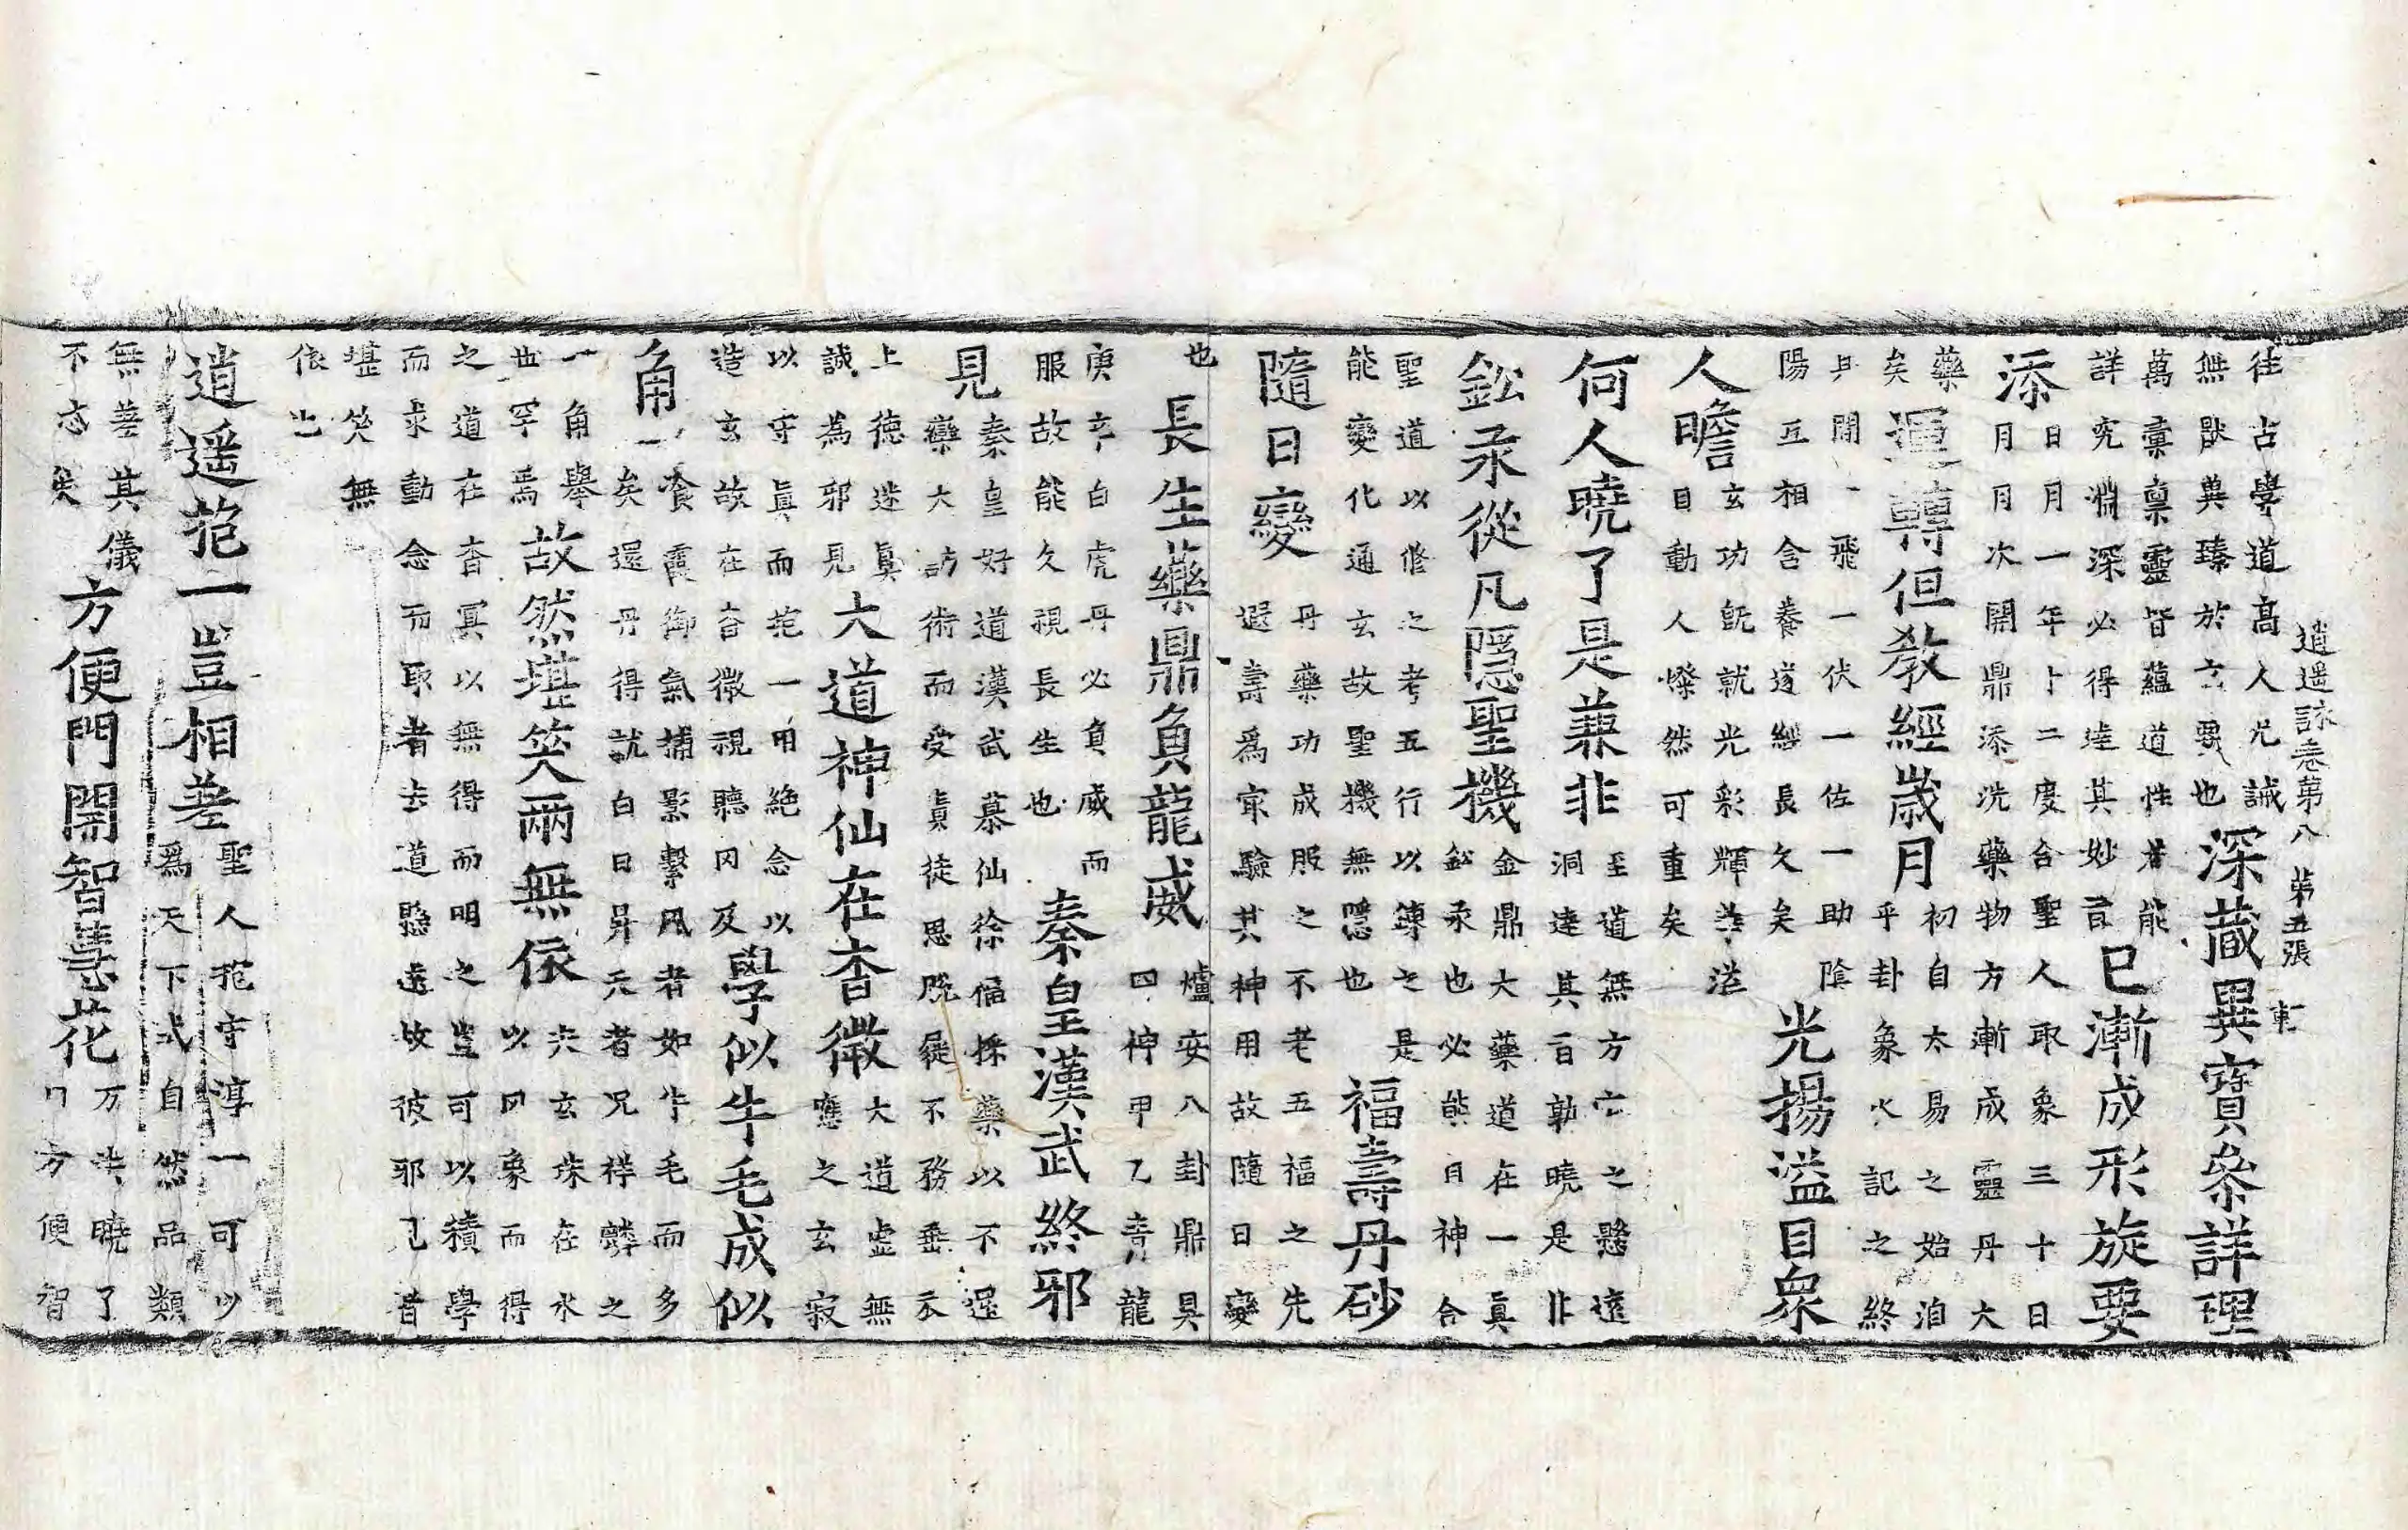 逍遥詠卷第八 第五張 車
往古學道高人尤誡
無猒異臻於玄要也
深藏異寶參詳理
萬彙稟靈皆蘊道性者能
詳究淵深必得達其妙言
已漸成形旋要
添
日月一年十二度合聖人取象三十日
月月次開鼎添洗藥物方漸成靈丹大
藥
矣
運轉但教經歲月
初自太易之始洎
乎卦象火記之終
其間一飛一伏一佐一助陰
陽互相含養遂經長久矣
光揚溢目衆
人瞻
玄功既就光彩輝華溢
目動人燦然可重矣
何人曉了是兼非
至道無方亡之懸遠
洞達其言孰曉是非
鈆汞從凡隱聖機
金鼎大藥道在一真
鈆汞也必能自神合
聖道以修之考五行以鍊之是
能變化通玄故聖機無隱也
福壽丹砂
隨日變
丹藥功成服之不老五福之先
遐壽爲宗驗其神用故隨日變
也
長生藥鼎負龍威
爐安八卦鼎具
四神甲乙青龍
庚辛白虎丹必負威而
服故能久視長生也
秦皇漢武終邪
見
秦皇好道漢武慕仙徐福採藥以不還
欒大訪術而受真徒思既屣不務垂衣
上德迷真
誠為邪見
大道神仙在杳微
大道虛無
應之玄寂
以守真而抱一用絶念以
造玄故在杳微視聽罔及
學似牛毛成似
角一
飡霞御氣捕影繫風者如牛毛而多
矣還丹得就白日昇天者况祥麟之
一角舉
世罕焉
故然堪笑兩無依
夫玄珠在水
以罔象而得
之道在杳冥以無得而明之豈可以積學
而求動念而取者去道懸遠故彼邪見者
堪笑無
依止
逍遥抱一豈相差
聖人抱守淳一可以
爲天下式自然品類
無差其儀
不忒矣
方便門開智慧花
万法曉了
門方便智